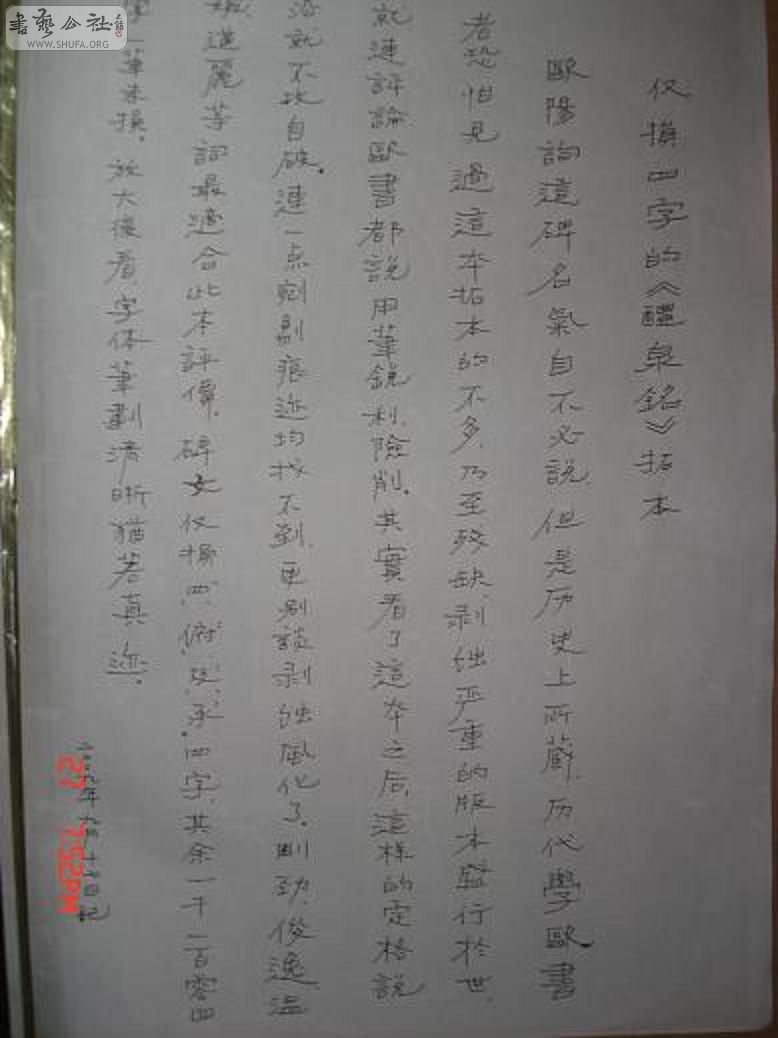 仅損四字的《醴泉銘》拓本
歐陽詢這碑名氣自不必說，但是历史上所藏，历代學歐書
者恐怕見過這本拓本的不多，乃至殘缺、剥蝕严重的版本發行於世，
就連評論歐書都說用筆銳利、險削。其實看了這本之后，這樣的定格說
就不攻自破。連一点剜剔痕迹均找不到，更别談剥蝕風化了。刚劲、俊逸、温
遒麗等詞最適合此本評價，碑文仅損四、俯、及、承。四字，其余一千一百零四
一筆未損。放大後看字体筆劃清晰猶若真迹。
年 日記
27 7:52PM
書藝公社
WWW.SHUFA.ORG